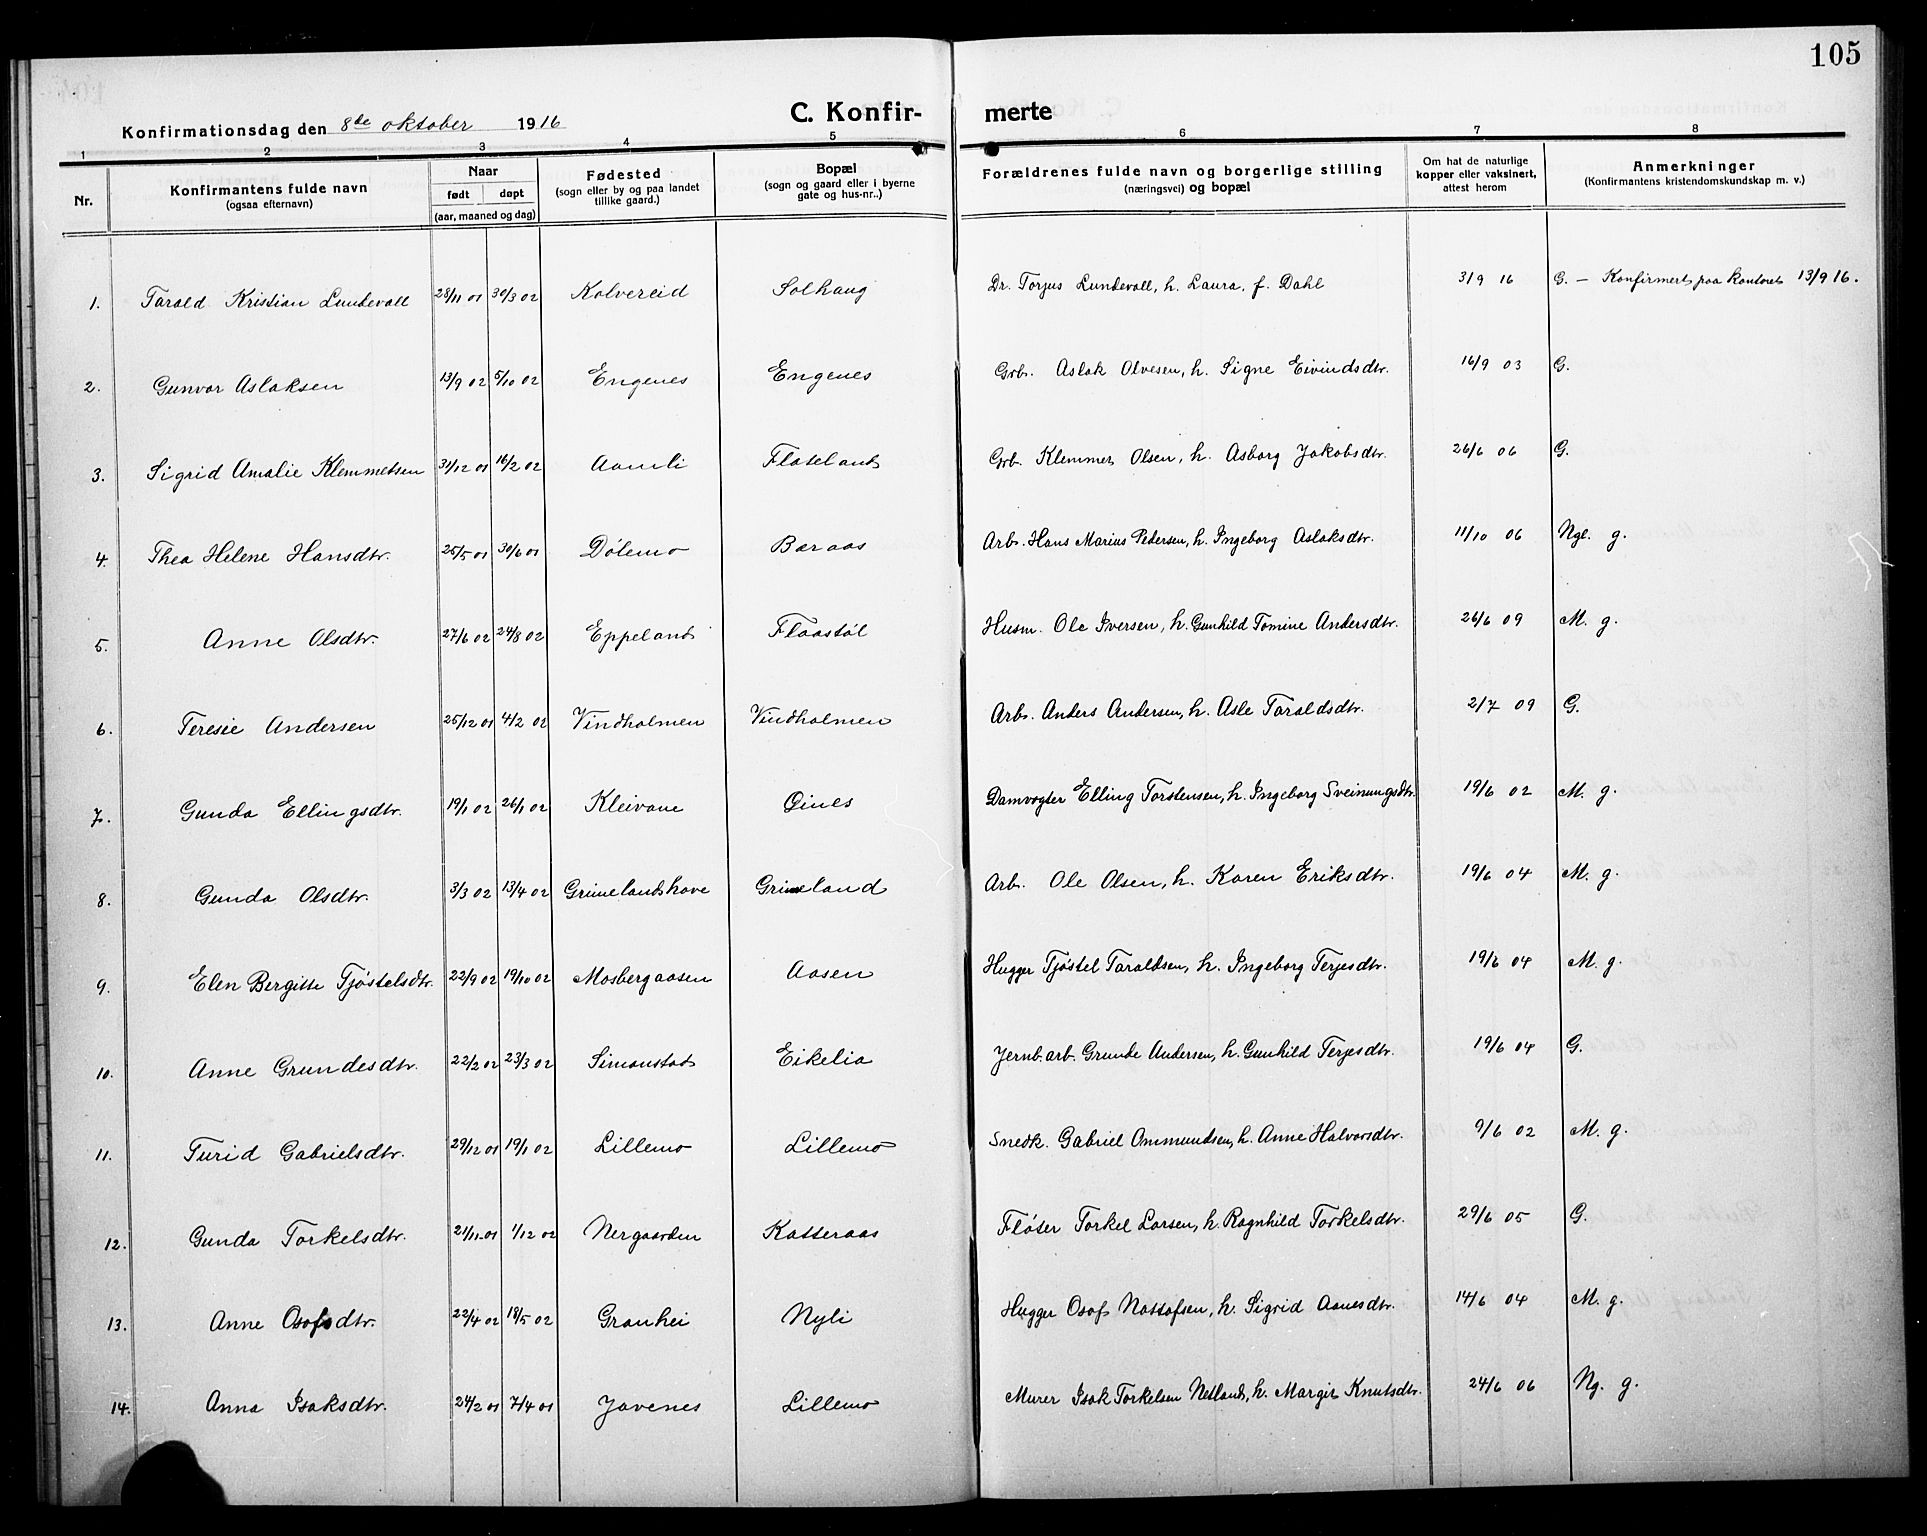 105
C. Konfir- merte
Konfirmationsdag den 8de oktober 1916
1 2 3 4 5 6 7 8
Nr.
Konfirmantens fulde navn
(ogsaa efternavn)
Naar
født døpt
(aar, maaned og dag)
Fødested
(sogn eller by og paa landet
tillike gaard.)
Bopæl
(sogn og gaard eller i byerne
gate og hus-nr..)
Forældrenes fulde navn og borgerlige stilling
(næringsvei) og bopæl
Om hat de naturlige
kopper eller vaksinert,
attest herom
Anmerkninger
(Konfirmantens kristendomskundskap m. v.)
1. Tarald Kristian Lundevall 28/11 01 30/3 02 Kolvereid Solhaug Dr. Torjus Lundevall, h. Laura, f. Dahl 3/9 16 G. – Konfirmert paa kontoret 13/9 16.
2. Gunvor Aslaksen 13/9 02 5/10 02 Engenes Engenes Grb. Aslak Olvesen, h. Signe Eivindsdtr. 16/9 03 G.
3. Sigrid Amalie Klemmetsen 31/12 01 16/2 02 Aamli Flateland Grb. Klemmet Olsen, h. Asborg Jakobsdtr. 26/6 06 G.
4. Thea Helene Hansdtr. 25/5 01 30/6 01 Dølemo Baraas Arb. Hans Marius Pedersen, h. Ingeborg Aslaksdtr. 11/10 06 Ngl. g.
5. Anne Olsdtr. 27/6 02 24/8 02 Eppeland Flaastøl Husm. Ole Iversen, h. Gunhild Tomine Andersdtr. 26/6 09 M. g.
6. Teresie Andersen 25/12 01 4/2 02 Vindholmen Vindholmen Arb. Anders Andersen, h. Asle Taraldsdtr. 2/7 09 G.
7. Gunda Ellingsdtr. 19/1 02 26/1 02 Kleivane Øines Damvogter Elling Torstensen, h. Ingeborg Sveinungsdtr. 19/6 02 M. g.
8. Gunda Olsdtr. 3/3 02 13/4 02 Grimelandshave Grimeland Arb. Ole Olsen, h. Karen Eriksdtr. 19/6 04 M. g.
9. Elen Bergitte Tjøstelsdtr. 22/9 02 19/10 02 Mosbergaasen Aasen Hugger Tjøstel Taraldsen, h. Ingeborg Terjesdtr. 19/6 04 M. g.
10. Anne Grundesdtr. 22/2 02 23/3 02 Simonstad Eikelia Jernb. arb. Grunde Andersen, h. Gunhild Terjesdtr. 19/6 04 G.
11. Turid Gabrielsdtr. 29/12 01 19/1 02 Lillemo Lillemo Snedk. Gabriel Ommundsen, h. Anne Halvorsdtr. 9/6 02 M. g.
12. Gunda Torkelsdtr. 21/11-01 1/12 02 Nergaarden Katteraas Fløter Torkel Larsen, h. Ragnhild Torkelsdtr. 29/6 05 G.
13. Anne Osofsdtr. 22/4 02 18/5 02 Granhei Nyli Hugger Osof Nottofsen, h. Sigrid Aanesdtr. 14/6 04 M. g.
14. Anna Isaksdtr. 24/2 01 7/4 01 Javenes Lillemo Murer Isak Torkelsen Netland, h. Margit Knutsdtr. 24/6 06 Ng. g.